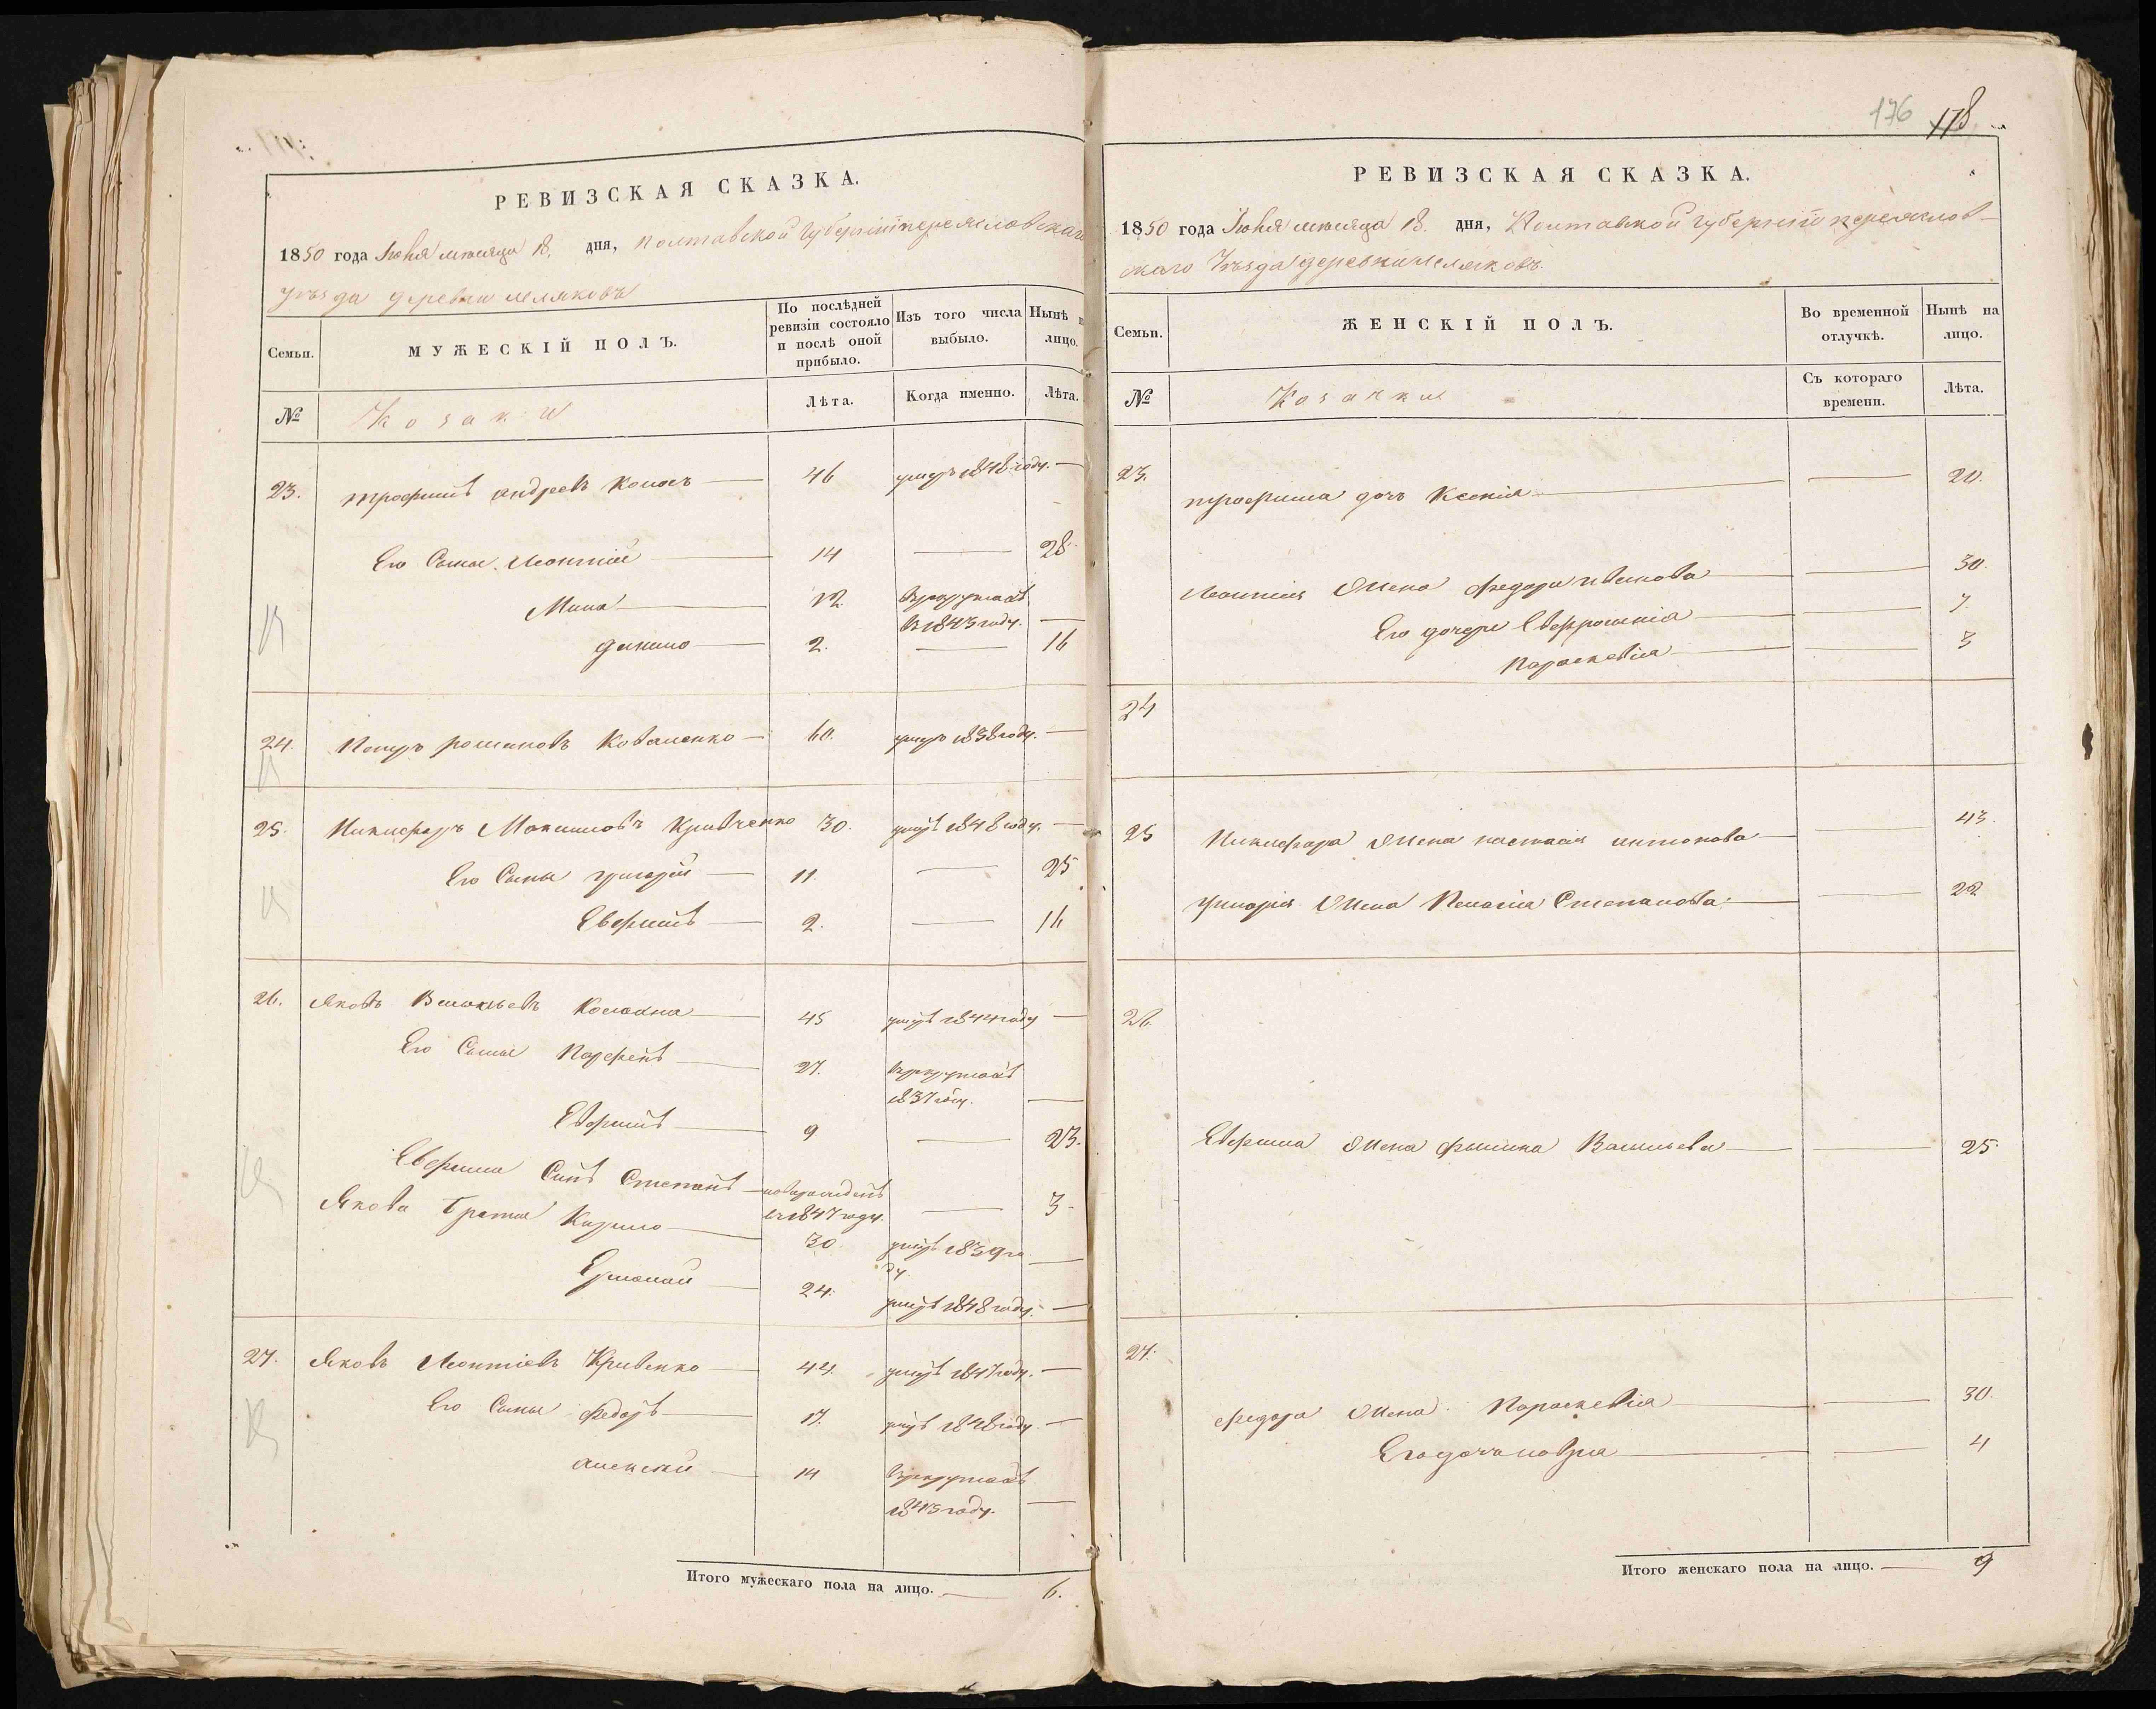 РЕВИЗСКАЯ СКАЗКА.
1850 года Іюня месяца 18. дня, Полтавской Губерніи переясловскаго
уезда деревни
Семьи.
МУЖЕСКІЙ ПОЛЪ.
По послѣдней ревизіи состояло и послѣ оной прибыло.
Изъ того числа выбыло.
Нынѣ на лицо.
№
Козаки
Лѣта.
Когда именно.
Лѣта.
23. трофимъ андреевъ 46 умеръ 1848 году. —
Его Сыны. Леонтій 14 — 28.
Мина 12 Врекрутахъ
в 1843 году. —
данило 2. — 16
24. Петръ романовъ Коваленко 60. умеръ 1838 году. —
25. Никифоръ Максимовъ Кривченко 30. умеръ 1848 году. —
Его Сыны григорій 11. — 25
Евфимъ 2. — 16
26. Яковъ 45 умеръ 1844 году —
Его Сыны Парфенъ 27. Врекрутахъ
1837 году. —
Евфимъ 9 — 23.
Евфима Сынъ Степанъ новорожденъ
в 1847 году. — 3.
Якова братья Кирило 30. умеръ 1839 го
ду. —
Ермолай 24. умеръ 1848 году. —
27. Яковъ Леонтіевъ Кривенко 44. умеръ 1847 году. —
Его Сыны федоръ 17. умеръ 1848 году. —
алексей 14 Врекрутахъ
1843 году. —
Итого мужескаго пола на лицо. — 6.
176 178
РЕВИЗСКАЯ СКАЗКА.
1850 года Іюня месяца 18. дня, Полтавской Губерніи переяслов-
скаго Уезда деревни
Семьи.
ЖЕНСКІЙ ПОЛЪ.
Во временной отлучкѣ.
Нынѣ на лицо.
№
Козачки
Съ котораго времени.
Лѣта.
23. трофима дочь Ксенія — 20.
Леонтія жена федора иванова — 30.
Его дочери Евфросинія — 7.
Параскевія — 3
24
25 Никифора жена настасія антонова — 43.
григорія жена Пелагія Степанова — 22
26.
Евфима жена Васильева — 25.
27.
федора жена Параскевія — 30.
Его дочь — 4
Итого женскаго пола на лицо. — 9